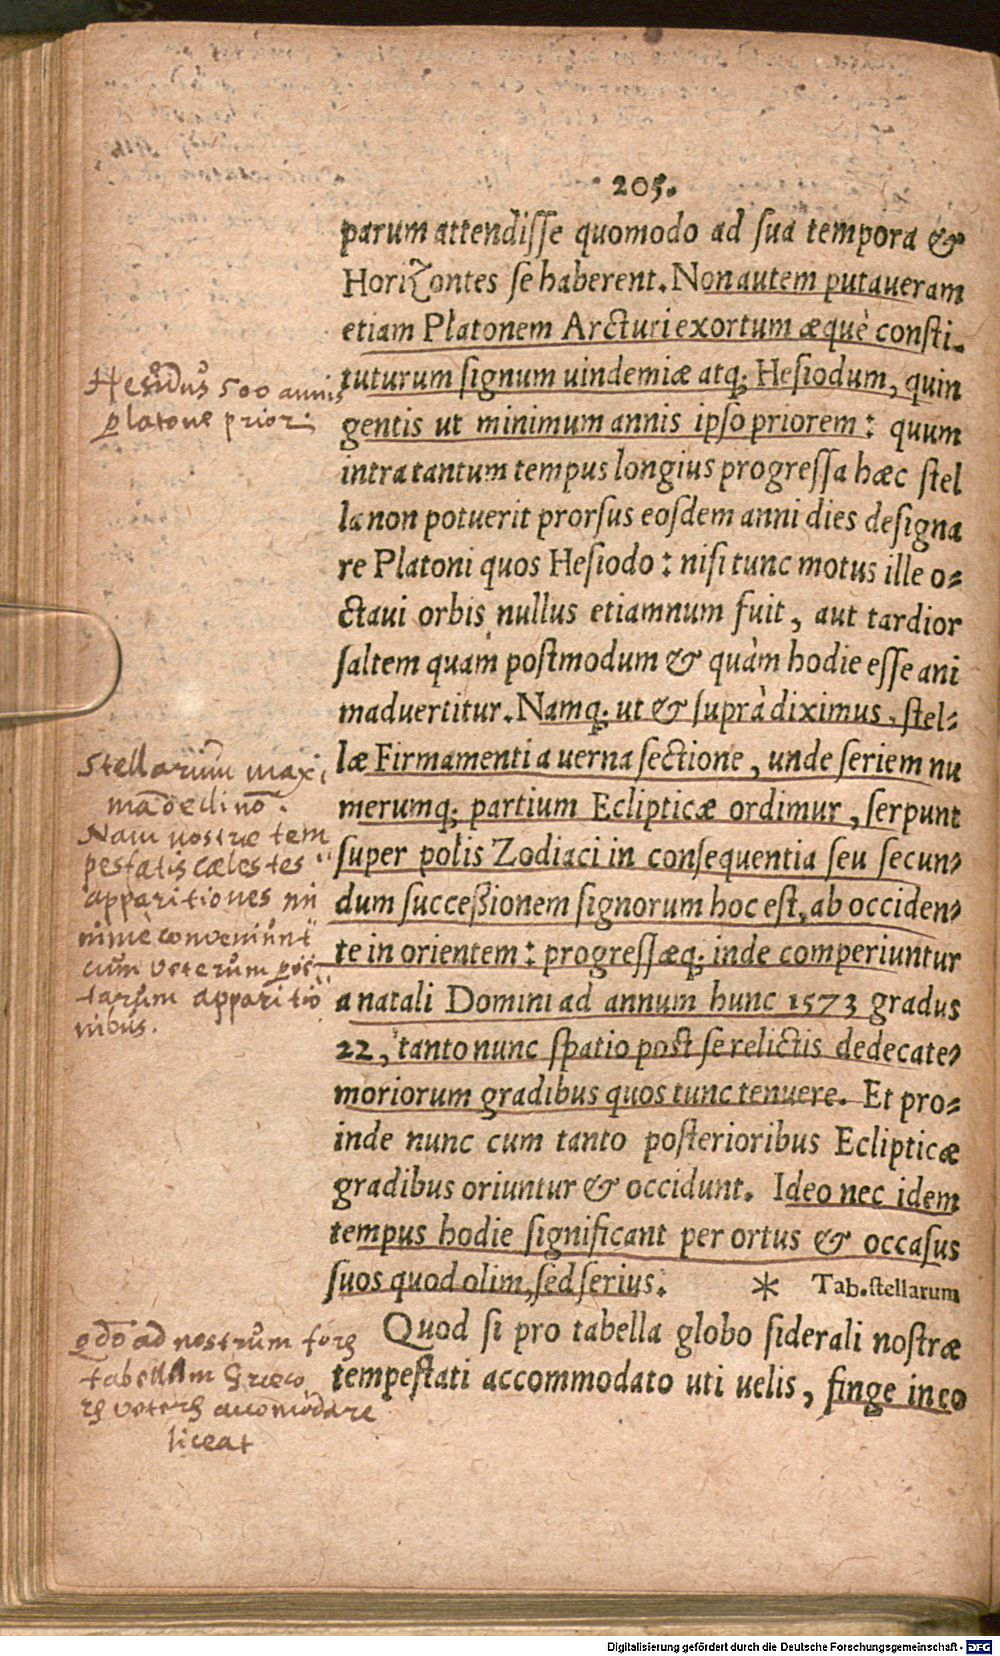 205.
parum attendisse quomodo ad sua tempora &
Horizontes se haberent. Non autem putaueram
etiam Platonem Arcturi exortum æquè consti-
tuturum signum uindemiæ atq; Hesiodum, quin
gentis ut minimum annis ipso priorem: quum
intra tantum tempus longius progressa hæc stel
la non potuerit prorsus eosdem anni dies designa
re Platoni quos Hesiodo: nisi tunc motus ille o-
ctaui orbis nullus etiamnum fuit, aut tardior
saltem quam postmodum & quàm hodie esse ani
maduertitur. Namq; ut & suprà diximus, stel-
læ Firmamenti a uerna sectione, unde seriem nu
merumq; partium Eclipticæ ordimur, serpunt
super polis Zodiaci in consequentia seu secun-
dum successionem signorum hoc est, ab occiden-
te in orientem: progressæq; inde comperiuntur
a natali Domini ad annum hunc 1573 gradus
22, tanto nunc spatio post se relictis dedecate-
moriorum gradibus quos tunc tenuere. Et pro-
inde nunc cum tanto posterioribus Eclipticæ
gradibus oriuntur & occidunt. Ideo nec idem
tempus hodie significant per ortus & occasus
suos quod olim, sed serius. * Tab. stellarum
Quod si pro tabella globo siderali nostræ
tempestati accommodato uti uelis, finge in eo
Hesiodus 500 annis
platone prior.
Stellarum maxi
Nam nostræ tem
pestatis cælestes
apparitiones mi
nimè conveniunt
cum veterum
apparitio
nibus.
ad nostrum
tabellam Græco
liceat
Digitalisierung gefördert durch die Deutsche Forschungsgemeinschaft - DFG